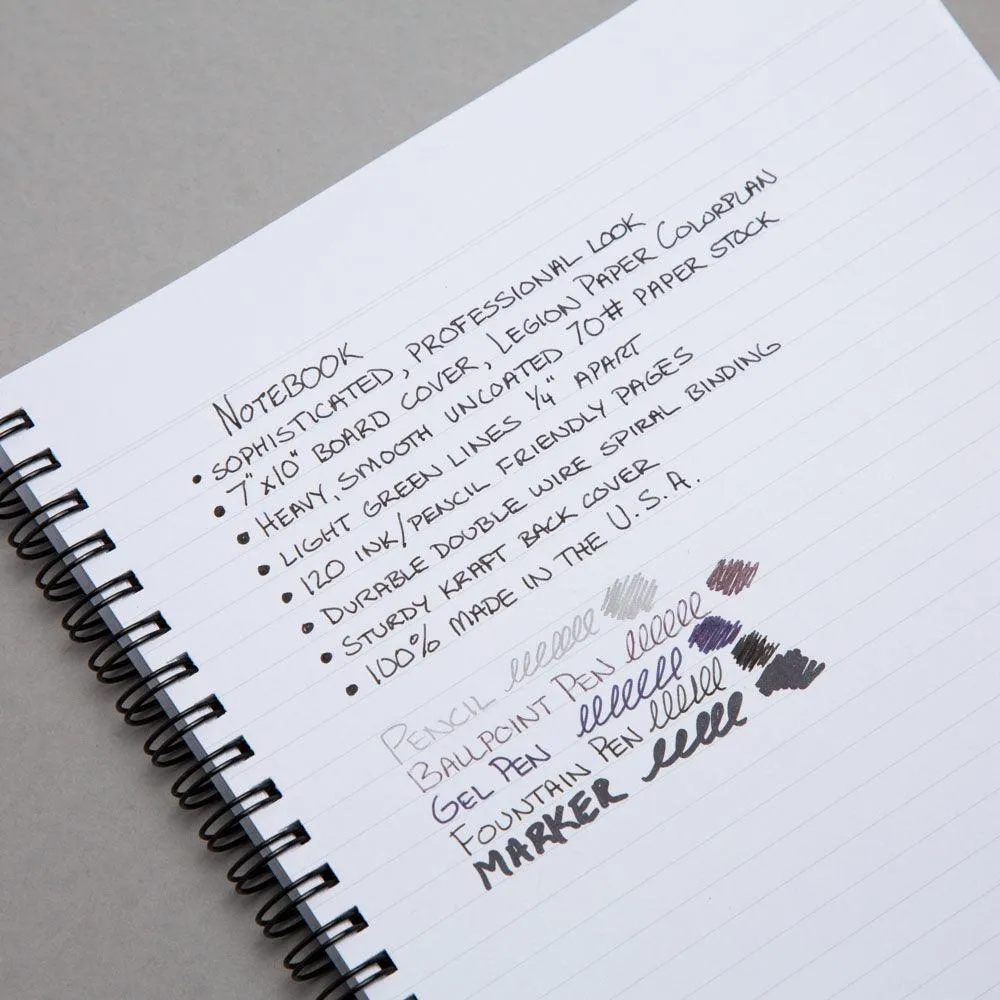 NOTEBOOK
• SOPHISTICATED, PROFESSIONAL LOOK
• 7"x10" BOARD COVER, LEGION PAPER COLORPLAN
• HEAVY, SMOOTH UNCOATED 70# PAPER STOCK
• LIGHT GREEN LINES 1/4" APART
• 120 INK/PENCIL FRIENDLY PAGES
• DURABLE DOUBLE WIRE SPIRAL BINDING
• STURDY KRAFT BACK COVER
• 100% MADE IN THE U.S.A.
PENCIL
BALLPOINT PEN
GEL PEN
FOUNTAIN PEN
MARKER